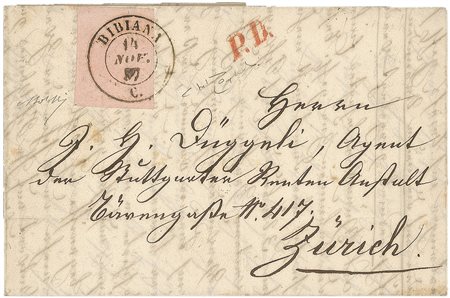 BIBIANA
14
NOV.
57
C.
P. D.
Herrn
J. H. Düggeli, Agent
der Stuttgarter Renten Anstalt
Bärengaße No. 417.
Zürich.